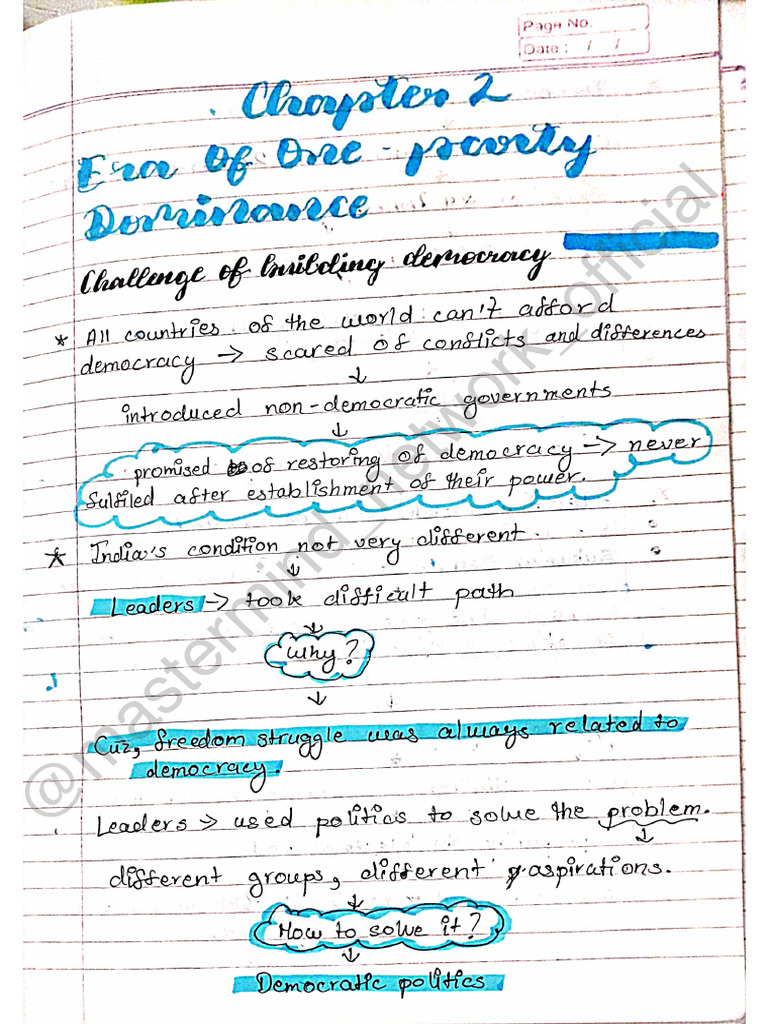 Page No.
Date : / /
Chapter 2
Era of One-party
Dominance
Challenge of building democracy
* All countries of the world can't afford
democracy → scared of conflicts and differences
↓
introduced non-democratic governments
↓
promised of restoring of democracy → never
fulfiled after establishment of their power.
* India's condition not very different.
↓
Leaders → took difficult path
↓
Why?
↓
Cuz, freedom struggle was always related to
democracy.
Leaders → used politics to solve the problem.
↓
different groups, different aspirations.
↓
How to solve it?
↓
Democratic politics
@mastermind_network_official